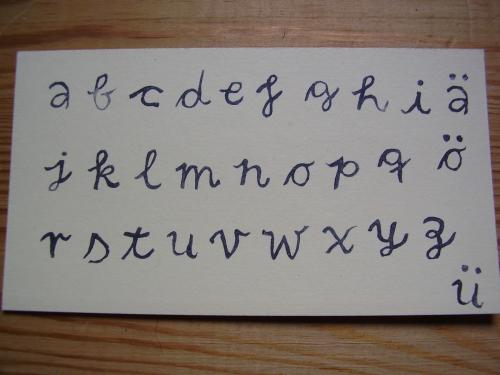 a b c d e f g h i ä
j k l m n o p q ö
r s t u v w x y z
ü